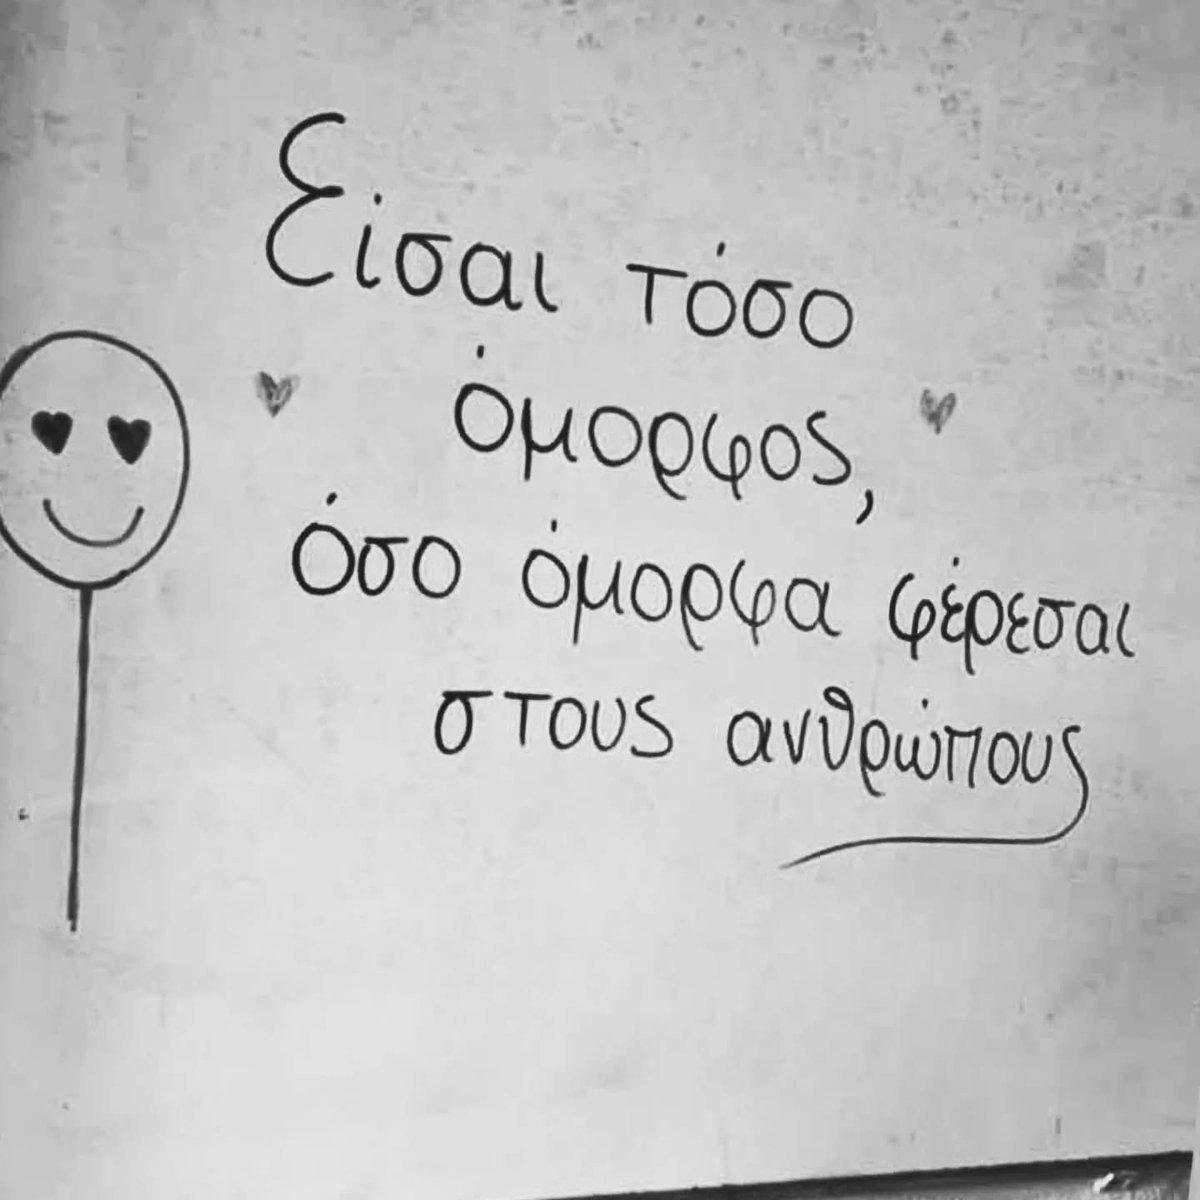 Είσαι τόσο
όμορφος,
όσο όμορφα φέρεσαι
στους ανθρώπους